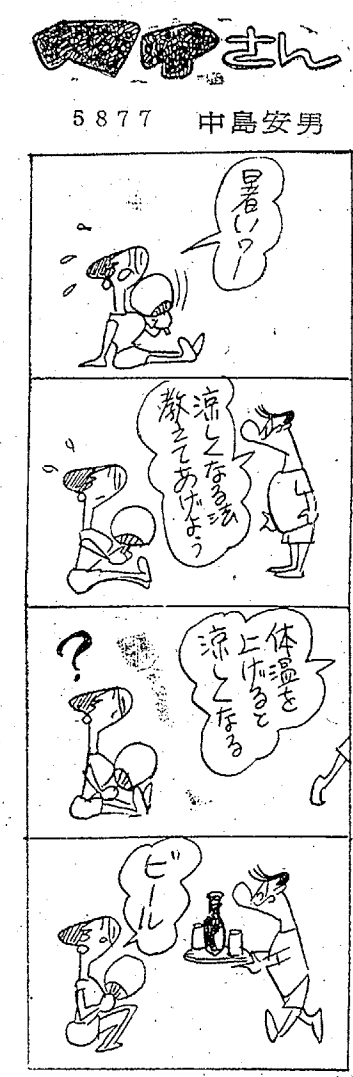 マアさん
5877 中島安男
暑いワー
涼しくなる法
教えてあげよう
体温を
上げると
涼しくなる
?
ビール